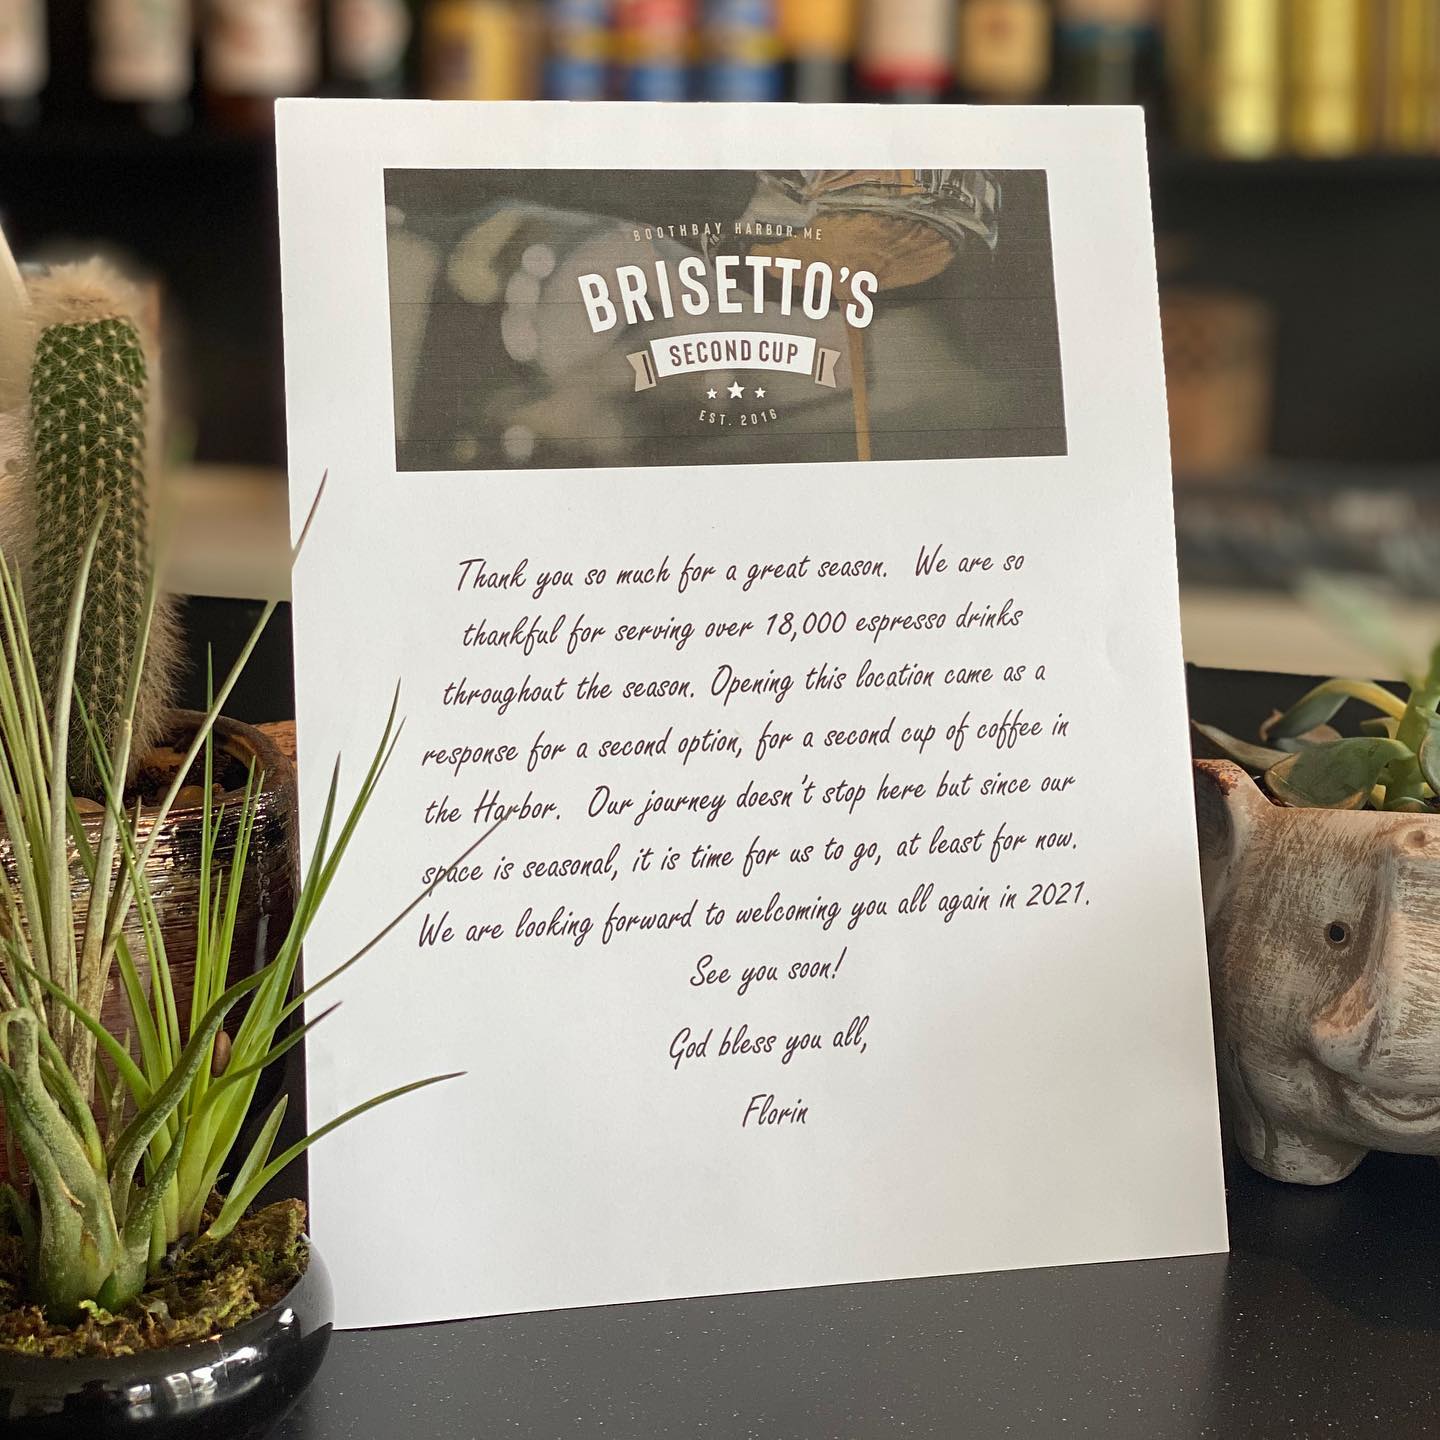 BOOTHBAY HARBOR. ME
BRISETTO'S
SECOND CUP
EST. 2016
Thank you so much for a great season. We are so
thankful for serving over 18,000 espresso drinks
throughout the season. Opening this location came as a
response for a second option, for a second cup of coffee in
the Harbor. Our journey doesn't stop here but since our
space is seasonal, it is time for us to go, at least for now.
We are looking forward to welcoming you all again in 2021.
See you soon!
God bless you all,
Florin